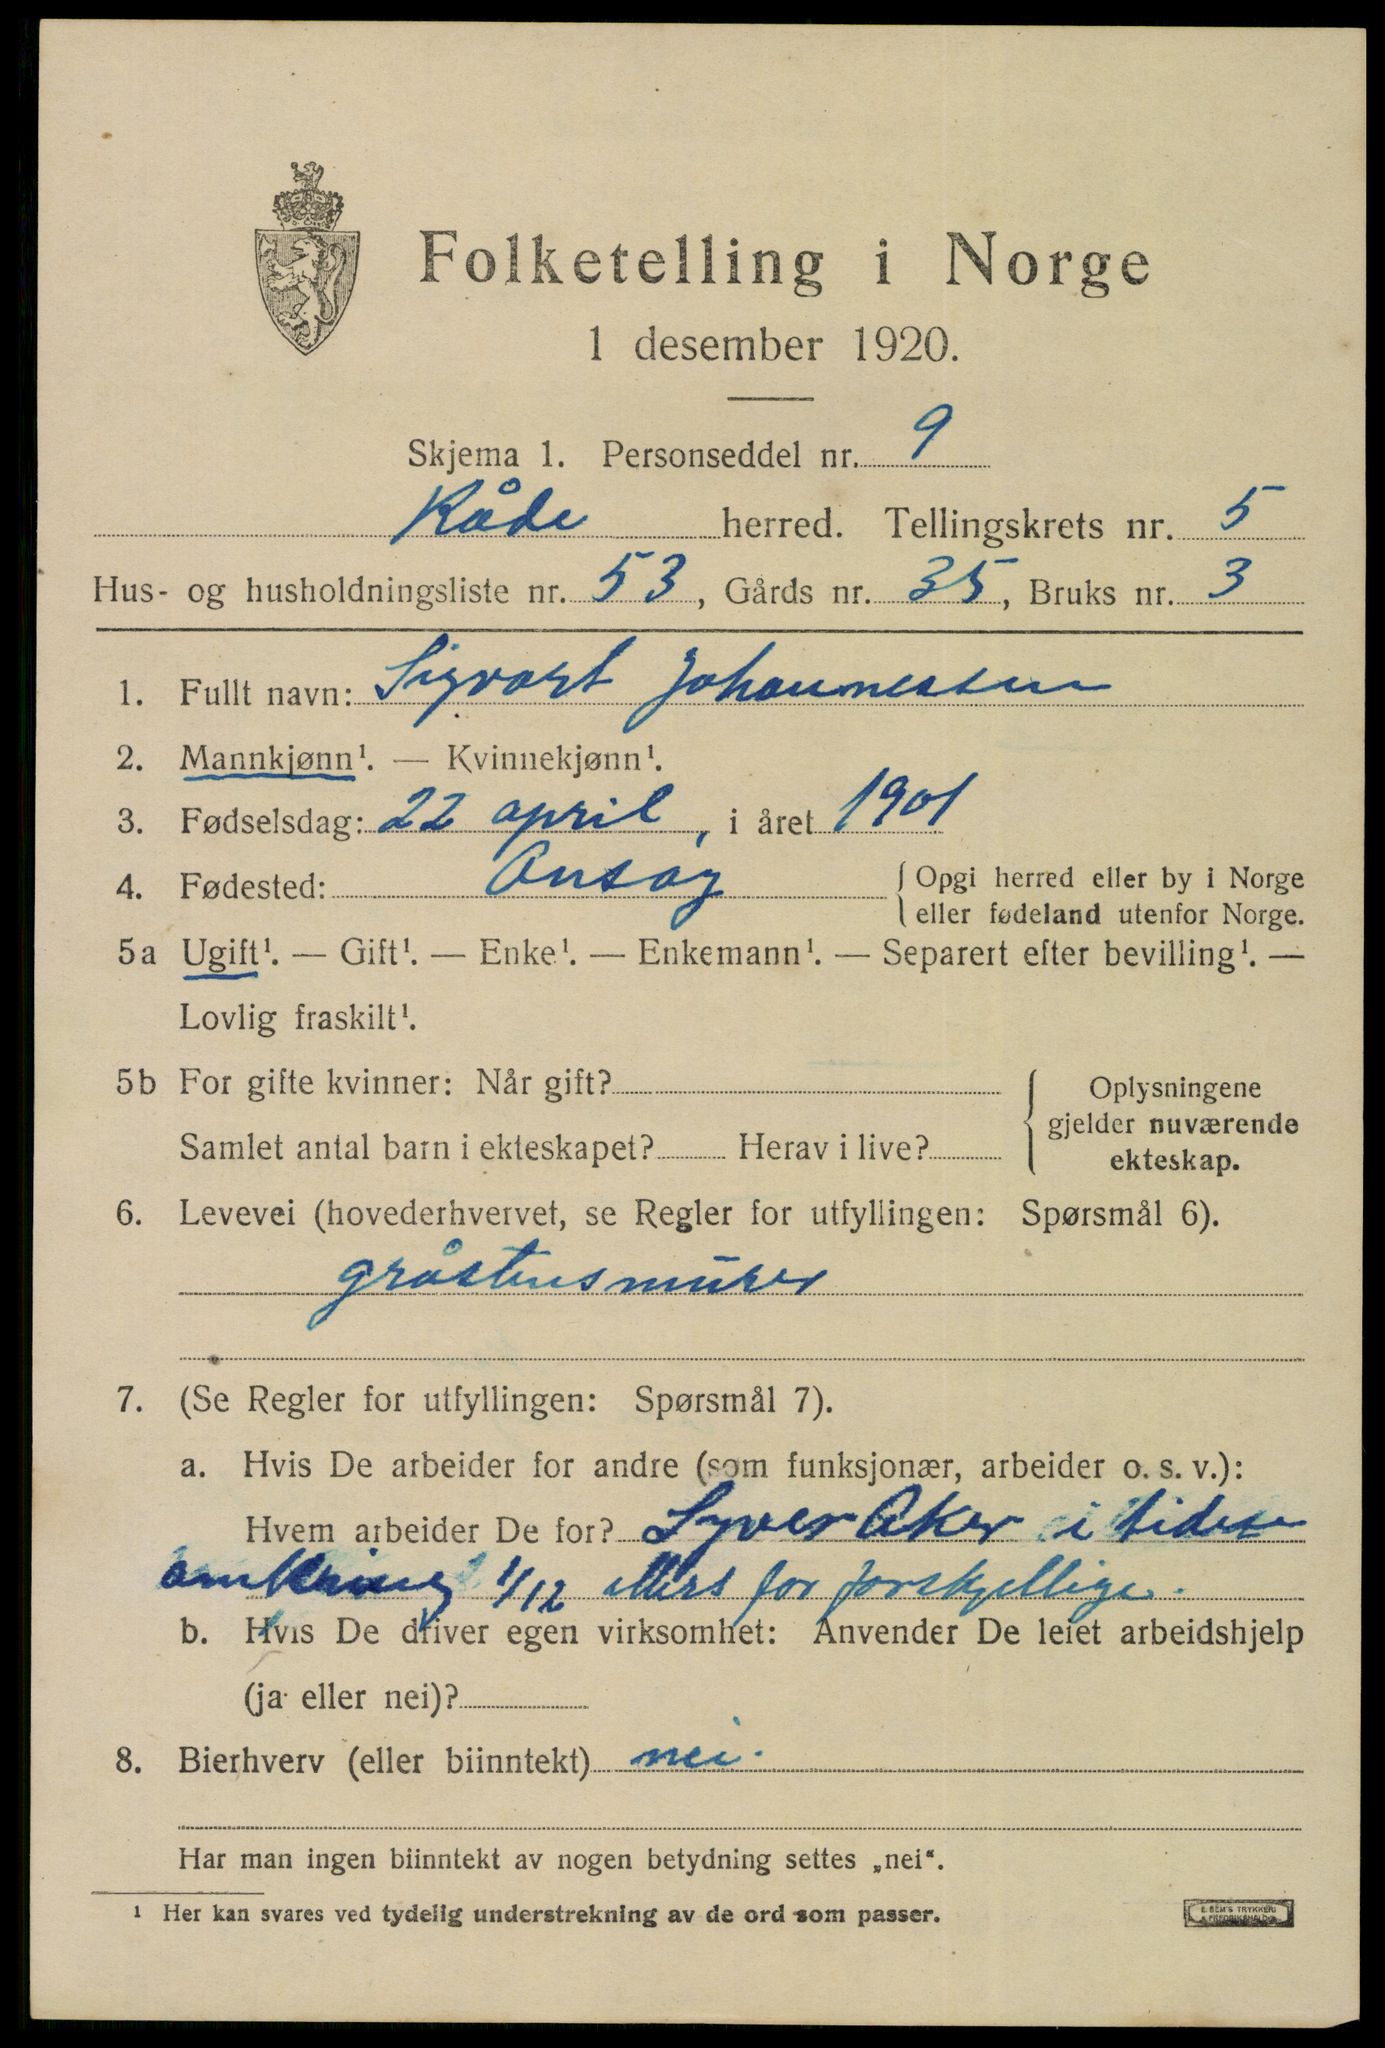 Folketelling i Norge
1 desember 1920.
Skjema 1. Personseddel nr. 9
Råde herred. Tellingskrets nr. 5
Hus- og husholdningsliste nr. 53, Gårds nr. 35, Bruks nr. 3
1. Fullt navn: Sigvart Johannessen
2. Mannkjønn¹. — Kvinnekjønn¹.
3. Fødselsdag: 22 april, i året 1901
4. Fødested: Onsøy { Opgi herred eller by i Norge
eller fødeland utenfor Norge.
5a Ugift¹. — Gift¹. — Enke¹. — Enkemann¹. — Separert efter bevilling¹. —
Lovlig fraskilt¹.
5b For gifte kvinner: Når gift? { Oplysningene
gjelder nuværende
Samlet antal barn i ekteskapet? Herav i live?
ekteskap.
6. Levevei (hovederhvervet, se Regler for utfyllingen: Spørsmål 6).
gråstensmurer
7. (Se Regler for utfyllingen: Spørsmål 7).
a. Hvis De arbeider for andre (som funksjonær, arbeider o. s. v.):
Hvem arbeider De for? Syver Aker i tiden
omkring 1/12 ellers for forskjellige.
b. Hvis De driver egen virksomhet: Anvender De leiet arbeidshjelp
(ja eller nei)?
8. Bierhverv (eller biinntekt) nei.
Har man ingen biinntekt av nogen betydning settes „nei“.
¹ Her kan svares ved tydelig understrekning av de ord som passer.
E. SEM'S TRYKKERI
FREDRIKSHALD